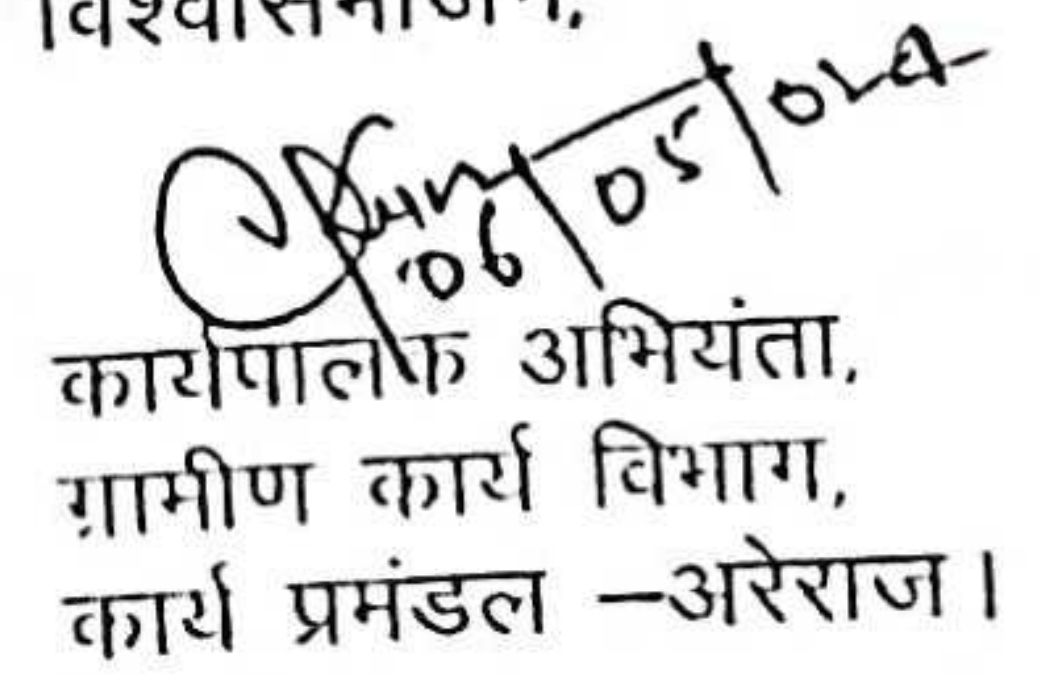 विश्वासभाजन,
06/05/024
कार्यपालक अभियंता,
ग्रामीण कार्य विभाग,
कार्य प्रमंडल –अरेराज।